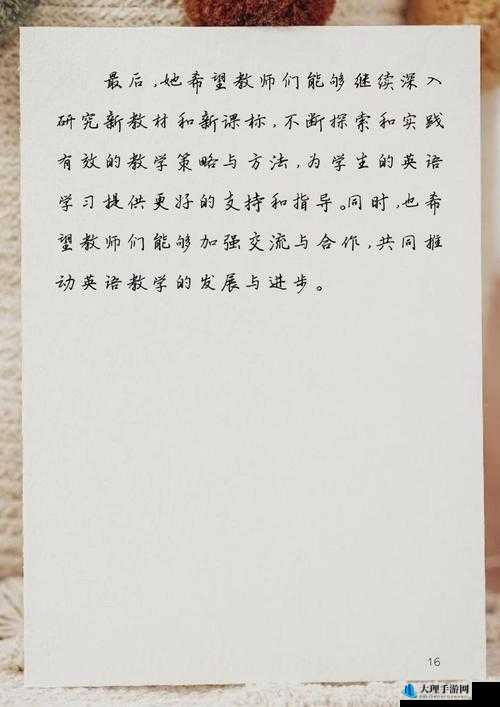 最后,她希望教师们能够继续深入
研究新教材和新课标,不断探索和实践
有效的教学策略与方法,为学生的英语
学习提供更好的支持和指导。同时,也希
望教师们能够加强交流与合作,共同推
动英语教学的发展与进步。
16
大理手游网